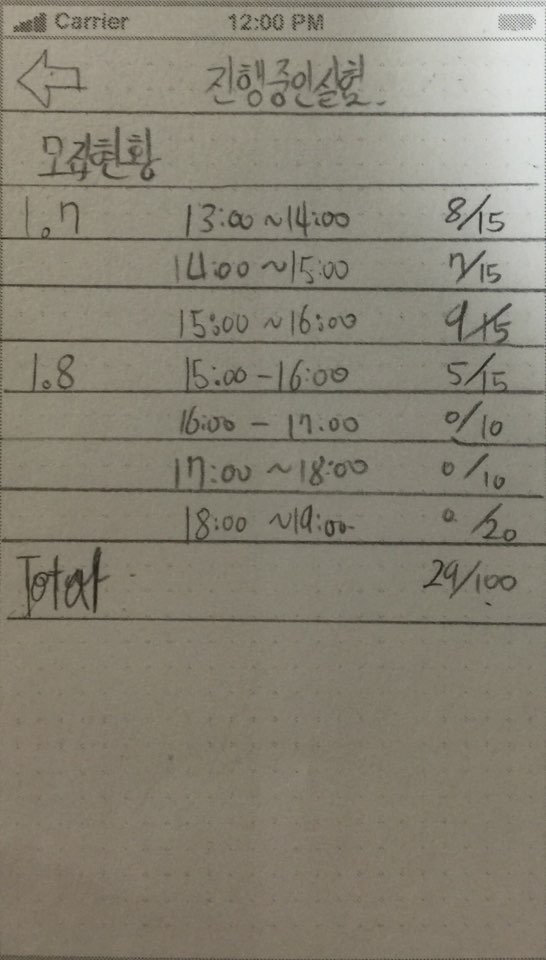 Carrier 12:00 PM
진행중인실험.
모집현황
1.7 13:00 ~14:00 8/15
14:00 ~15:00 7/15
15:00 ~16:00 9/15
1.8 15:00 -16:00 5/15
16:00 - 17:00 0/10
17:00 ~18:00 0/10
18:00 ~19:00 0/20
Total 29/100